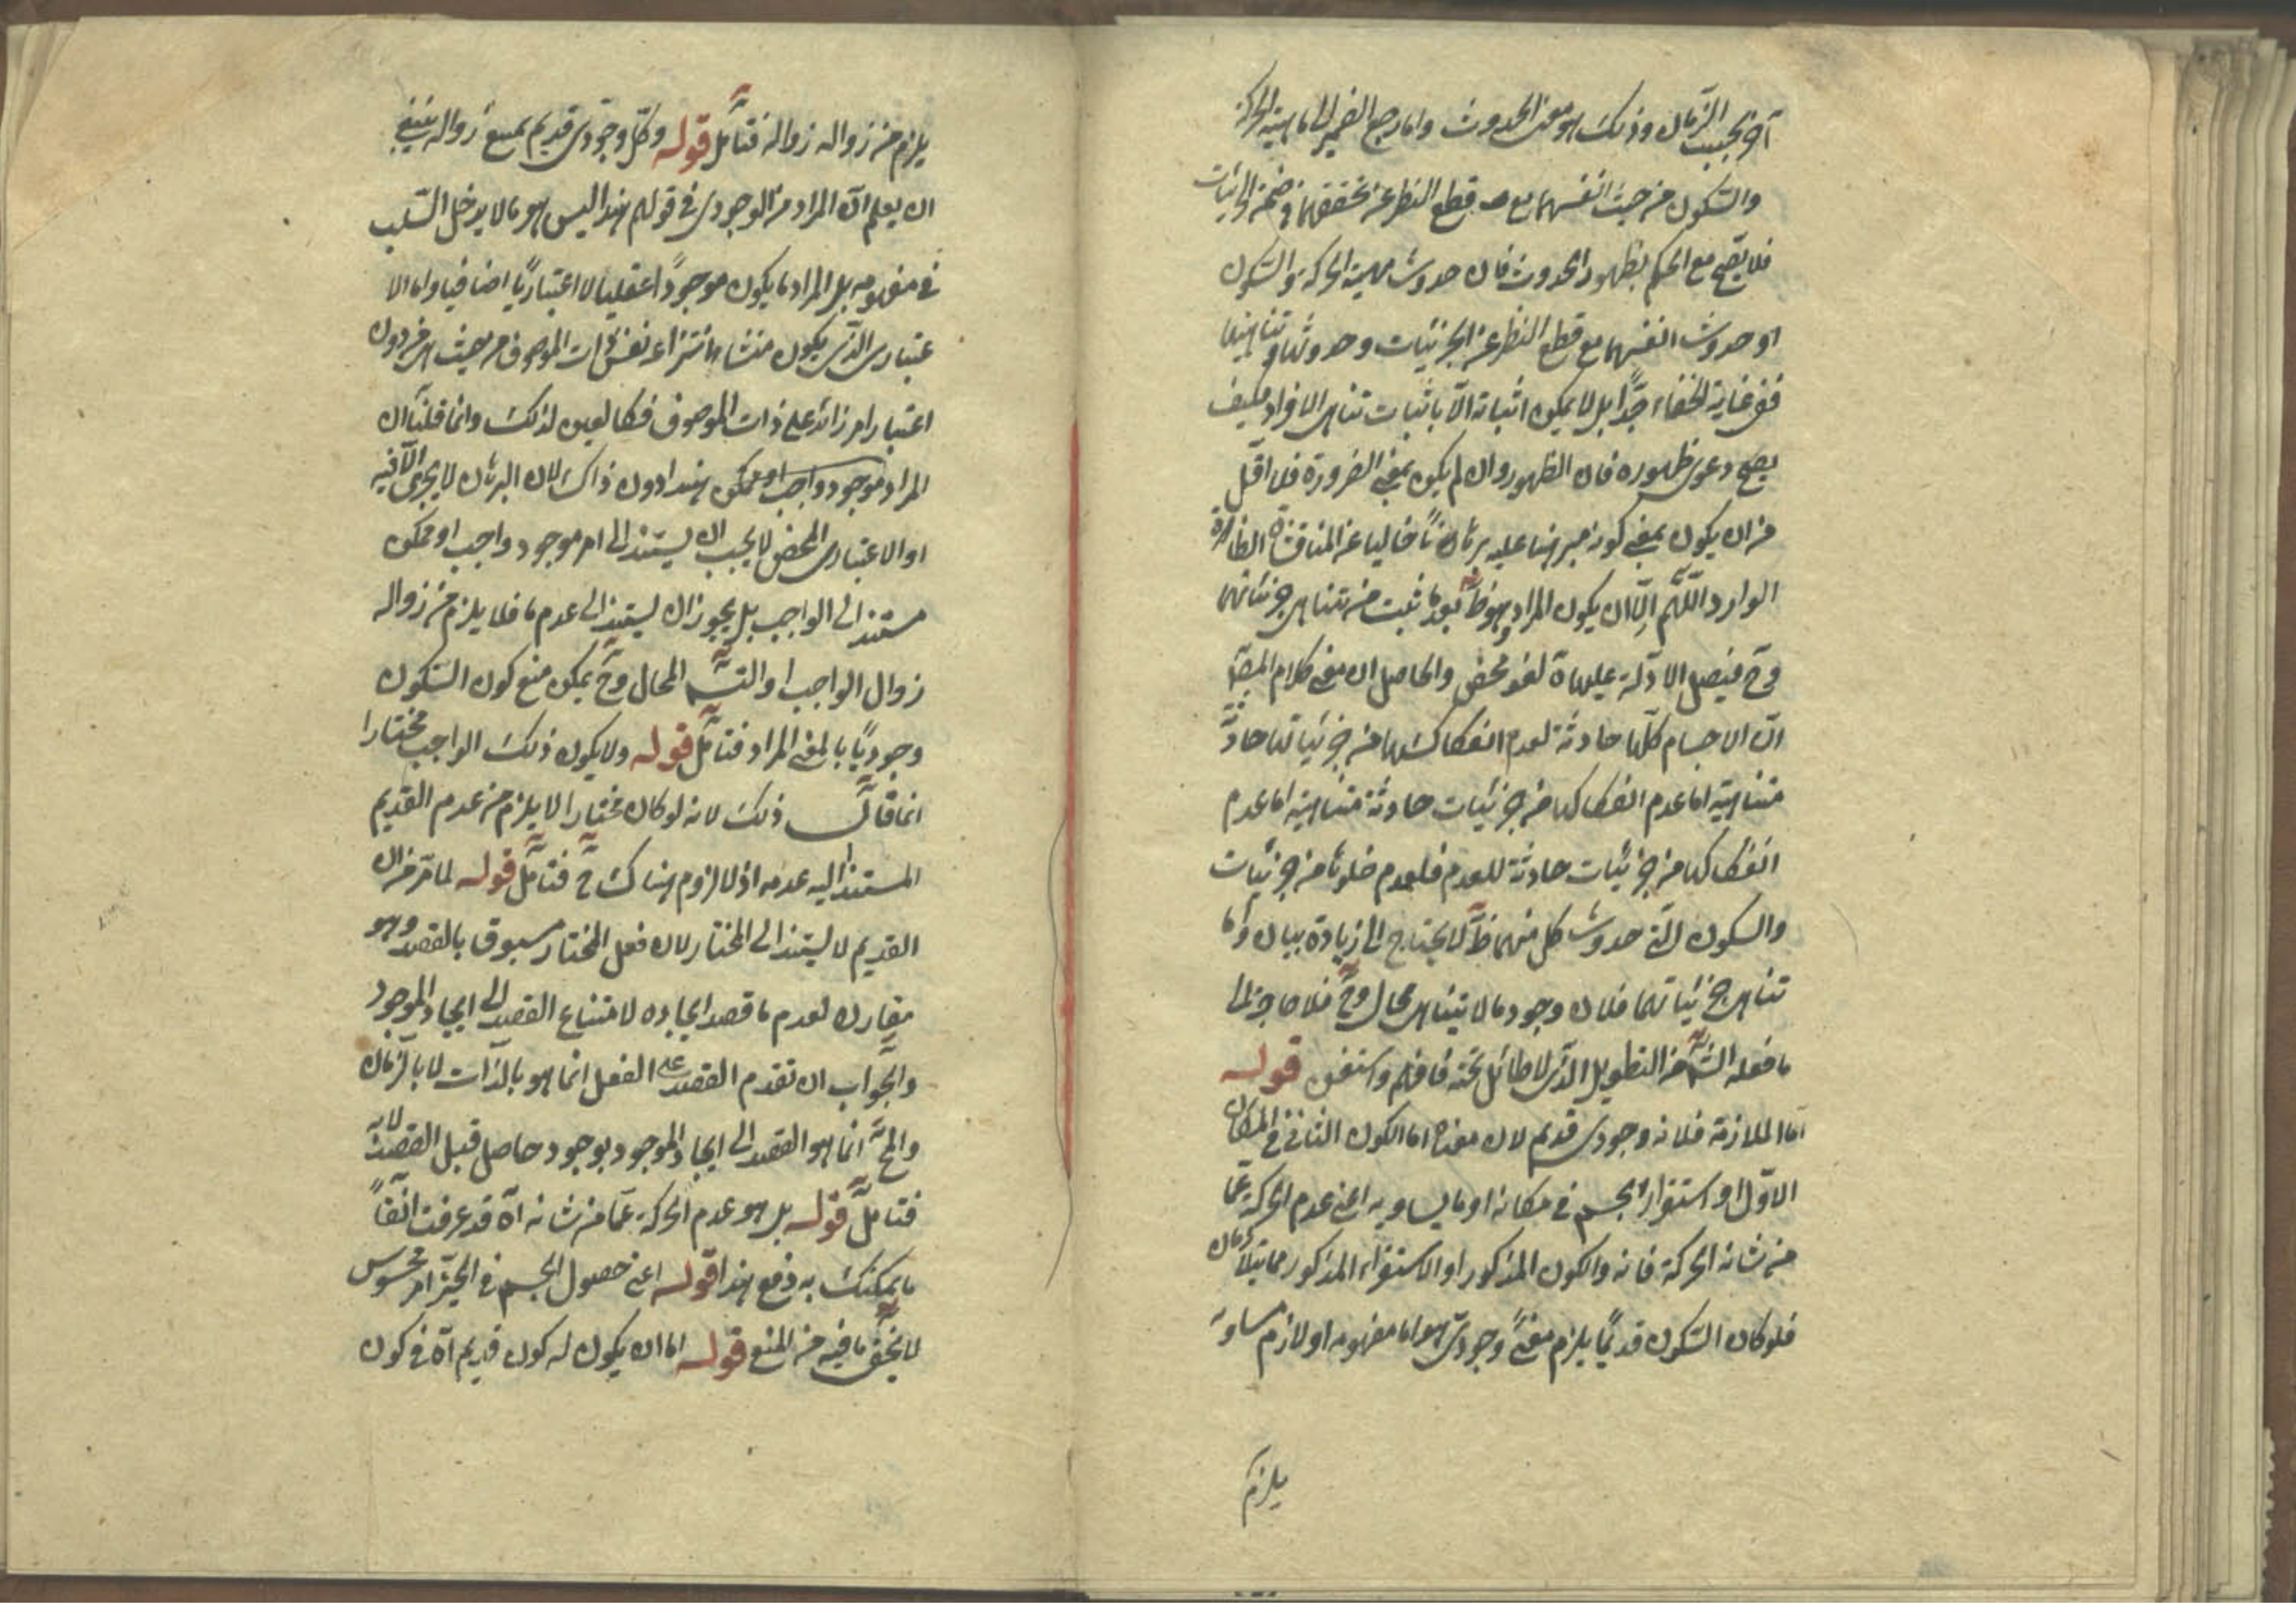 آه بحسب الزمان وذلك هو معنى الحدوث واما رجع الضمير الى ماهية الحركة
والسكون من حيث انفسهما مع قطع النظر عن تحققهما في ضمن الجزئيات
فلا يصح مع الحكم بظهور الحدوث فان حدوث مهية الحركة والسكون
او حدوث انفسهما مع قطع النظر عن الجزئيات وحدوثها وتناهيها
ففي غاية الخفاء جدًّا بل لا يمكن اثباته الّا باثبات تناهى الافراد فكيف
يصح دعوى ظهوره فان الظهور وان لم يكن بمعنى الضرورة فلا اقل
من ان يكون بمعنى كونه مبرهنا عليه برهانًا خاليا عن المناقشة الظاهرة
الوارد اللّهم الّا ان يكون المراد وهو ظ بعد ما ثبت من تناهى جزئياتهما
وح فيصل الادلة عليهاة لغو محض والحاصل ان معنى كلام المصّ
انّ الاجسام كلّها حادثة لعدم انفكاكها من جزئيات حادثة
متناهية اما عدم انفكاكها من جزئيات حادثة متناهية اما عدم
انفكاكها من جزئيات حادثة للعدم فلعدم خلوها من جزئيات
والسكون التى حدوث كل منهما ظ لا يحتاج الى زيادة بيان واما
تناهى جزئياتهما فلان وجود ما لا يتناهى محال وح فلا حاجة الى
ما فعله الش من التطويل الذى لا طائل تحته فافهم واستقم قوله
اما الملازمة فلانه وجودى قديم لان معناه اما الكون الثانى فى المكان
الاوّل او استقرار الجسم فى مكانه او ما يساويه اعنى عدم الحركة عمّا
من شانه الحركة فانه والكون المذكور او الاستقرار المذكور متلازمان
فلو كان السكون قديمًا يلزم معنًى وجودىّ هو اما مفهومه او لازم مساو له
يلزم
يلزم من زواله زواله فتأمل قوله وكل وجودى قديم يمتنع زواله ينبغى
ان يعلم انّ المراد من الوجودى فى قولهم هذا ليس هو ما لا يدخل السّلب
فى مفهومه بل المراد ما يكون موجودًا عقليا لا اعتباريًّا اضافيا واما الا
عتبارى الذى يكون منشاء انتزاعه نفس ذات الموصوف من حيث هى من دون
اعتبار امر زائد على ذات الموصوف فكالعين لذلك وانما قلنا ان
المراد موجود واجب او ممكن هذا دون ذاك لان البرهان لا يجرى الّا فيه
او الاعتبارى المحض لا يجب ان يستند الى امر موجود واجب او ممكن
مستند الى الواجب بل يجوز ان يستند الى عدم ما فلا يلزم من زواله
زوال الواجب او التسـ المحال وح يمكن منع كون السكون
وجوديًّا بالمعنى المراد فتأمل قوله ولا يكون ذلك الواجب مختارا
انما قال ذلك لانه لو كان مختارا لا يلزم من عدم القديم
المستند اليه عدمه اذ لا لزوم هناك ح فتأمل قوله لما مرّ من ان
القديم لا يستند الى المختار لان فعل المختار مسبوق بالقصد وهو
مقارن لعدم ما قصد ايجاده لامتناع القصد الى ايجاد الموجود
والجواب ان تقدم القصد على الفعل انما هو بالذات لا بالزمان
والمح انما هو القصد الى ايجاد الموجود بوجود حاصل قبل القصد
فتأمل قوله بل هو عدم الحركة عمّا من شانه آه قد عرفت آنفًا
ما يمكنك به دفع هذا قوله اعنى حصول الجسم فى الحيّز امر محسوس
لا يخفى ما فيه من المنع قوله اما ان يكون له كون قديم آه فى كون